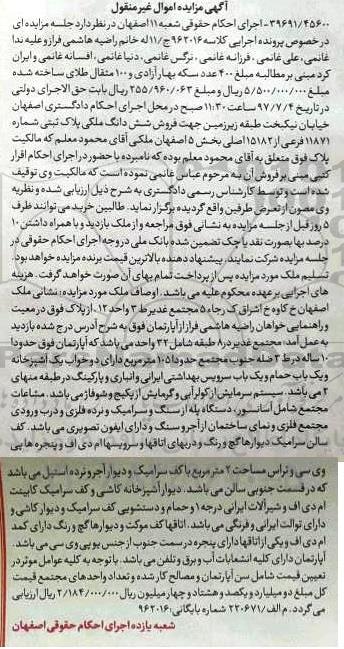 آگهی مزایده اموال غیرمنقول
۳۹۶۹۱/۴۵۶۰۰- اجرای احکام حقوقی شعبه ۱۱ اصفهان در نظر دارد جلسه مزایده ای
در خصوص پرونده اجرایی کلاسه ۹۶۲۰۱۶ ج/۱۱ له خانم راضیه هاشمی فراز و علیه ندا
غانمی، علی غانمی، فرزانه غانمی، نرگس غانمی، دنیا غانمی، افسانه غانمی و ایران
کرد مبنی بر مطالبه مبلغ ۴۰۰ عدد سکه بهار آزادی و ۱۰۰ مثقال طلای ساخته شده
و مبلغ ۵/۵۰۰/۰۰۰ ریال و مبلغ ۲۵۵/۹۶۰/۰۶۳ ریال بابت حق الاجرای دولتی
در تاریخ ۹۷/۷/۴ ساعت ۱۱:۳۰ صبح در محل اجرای احکام دادگستری اصفهان
خیابان نیکبخت طبقه زیرزمین جهت فروش شش دانگ ملکی پلاک ثبتی شماره
۱۱۸۷۱ فرعی از ۱۵۱۸۲ اصلی بخش ۵ اصفهان ملکی آقای محمود معلم که مالکیت
پلاک فوق متعلق به آقای محمود معلم بوده که نامبرده با حضور در اجرای احکام اقرار
کتبی مبنی بر فروش آن به مرحوم عباس غانمی نموده است که مالکیت وی توقیف
شده است و توسط کارشناس رسمی دادگستری به شرح ذیل ارزیابی شده و نظریه
وی مصون از تعرض طرفین واقع گردیده برگزار نماید. طالبین خرید می توانند ظرف
۵ روز قبل از جلسه مزایده به نشانی فوق مراجعه و از ملک بازدید و با همراه داشتن ۱۰
درصد بها بصورت نقد یا چک تضمین شده بانک ملی در وجه اجرای احکام حقوقی در
جلسه مزایده شرکت نمایند. پیشنهاد دهنده بالاترین قیمت برنده مزایده خواهد بود.
تسلیم ملک مورد مزایده پس از پرداخت تمام بهای آن صورت خواهد گرفت. هزینه
های اجرایی بر عهده محکوم علیه می باشد. اوصاف ملک مورد مزایده: نشانی ملک
اصفهان خ کاوه خ اشراق ک رجاء ۵ مجتمع غدیر ط ۳ واحد ۱۲. از پلاک فوق در معیت
و راهنمایی خواهان راضیه هاشمی فراز از آپارتمان فوق به شرح آدرس درج شده بازدید
به عمل آمد: مجتمع غدیر در ۸ طبقه شامل ۳۲ واحد می باشد که آپارتمان فوق حدودا
۱۰ ساله در ط ۳ ضلع جنوب مجتمع حدودا ۱۰۵ متر مربع دارای دو خواب یک آشپزخانه
و یک باب حمام و یک باب سرویس بهداشتی ایرانی و انباری و پارکینگ در طبقه منهای
۲ می باشد. سیستم سرمایش از کولر آبی و گرمایش از پکیج و شوفاژ می باشد. مشاعات
مجتمع شامل آسانسور، دستگاه پله از سنگ و سرامیک و نرده فلزی و درب ورودی
مجتمع فلزی و نمای ساختمان از آجر و سنگ و دارای آیفون تصویری می باشد. کف
سالن سرامیک دیوارها گچ و رنگ و دربهای اتاقها و سرویسها ام دی اف و پنجره ها پی
وی سی و تراس مساحت ۲ متر مربع با کف سرامیک و دیوار آجر و نرده استیل می باشد
که در قسمت جنوبی سالن می باشد. دیوار آشپزخانه کاشی و کف سرامیک کابینت
ام دی اف و شیرآلات ایرانی درجه ۱ و حمام و دستشویی کف سرامیک و دیوار کاشی و
دارای توالت ایرانی و فرنگی می باشد. اتاقها کف موکت و دیوارها گچ و رنگ دارای کمد
ام دی اف و یکی از اتاقها دارای پنجره در سمت جنوب از جنس یو پی وی سی می باشد.
آپارتمان دارای کلیه انشعابات آب و برق و تلفن می باشد. با توجه به کلیه عوامل موثر در
تعیین قیمت شامل سن آپارتمان و مصالح کار شده و تعداد واحدهای مجتمع قیمت
کل مبلغ دو میلیارد و یکصد و هشتاد و چهار میلیون ریال ۲/۱۸۴/۰۰۰/۰۰۰ ریال ارزیابی
می گردد. م الف/ ۲۲۰۶۷۱ شماره بایگانی: ۹۶۲۰۱۶
شعبه یازده اجرای احکام حقوقی اصفهان